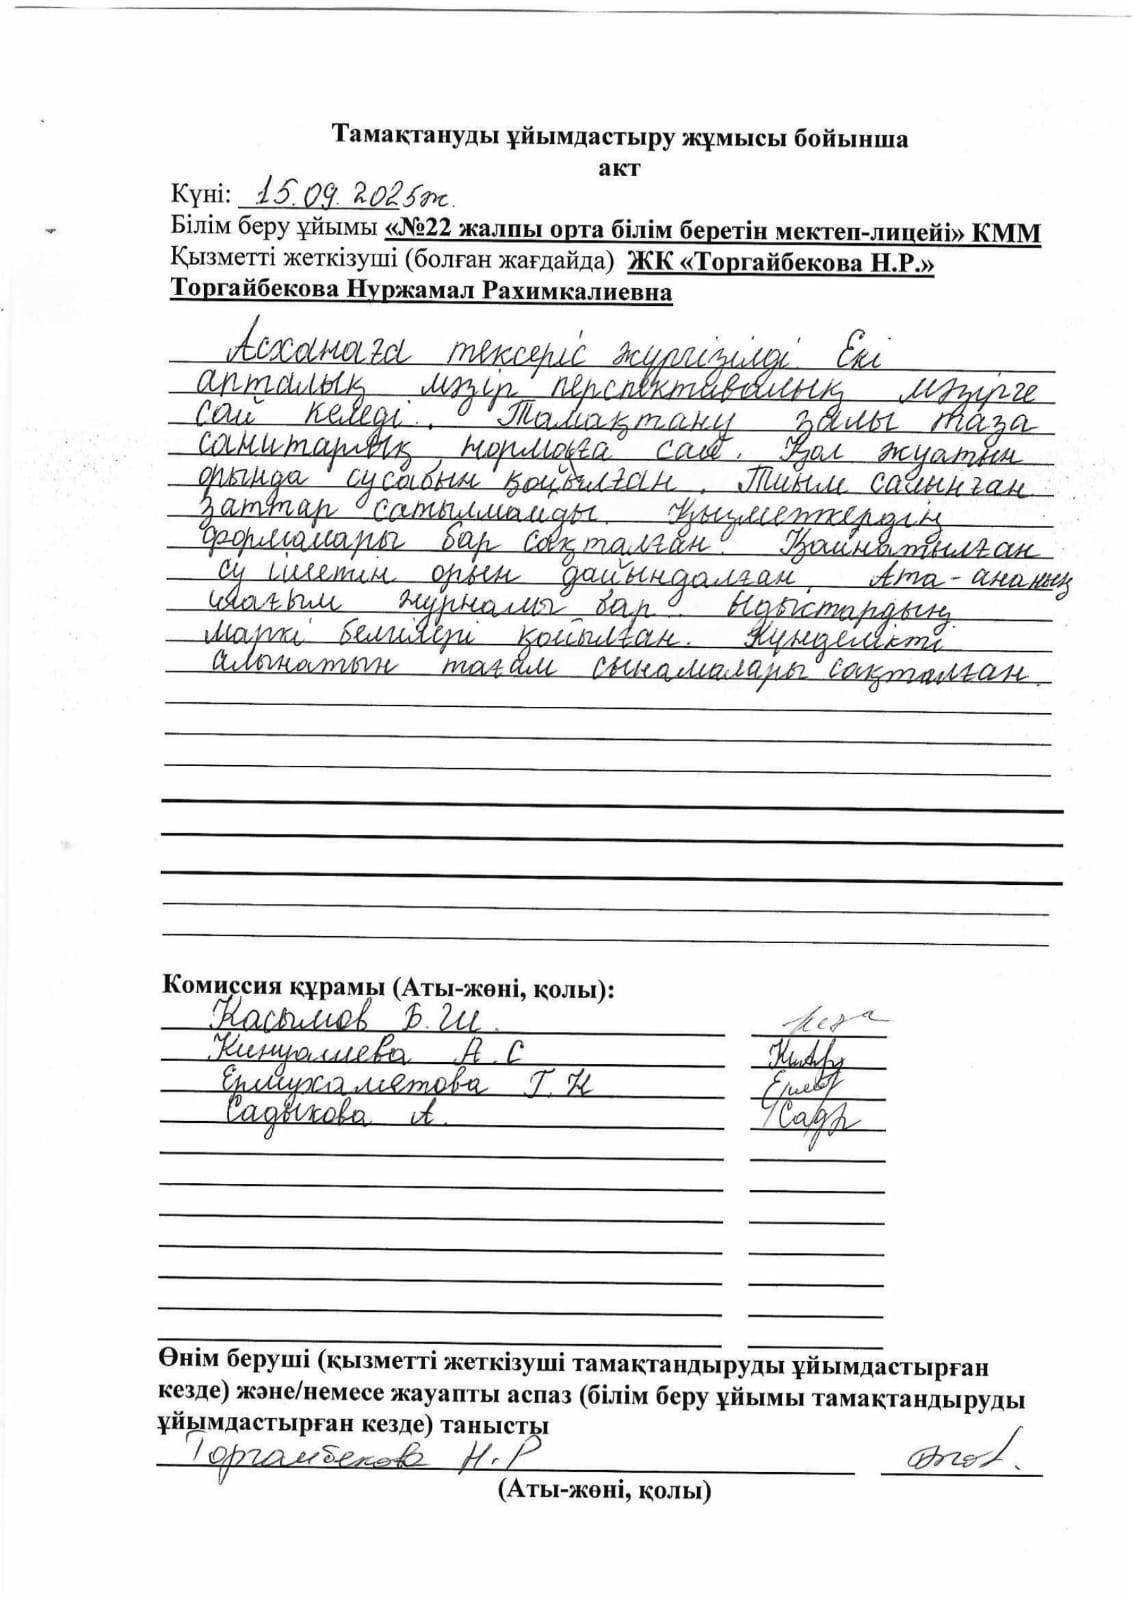 Тамақтануды ұйымдастыру жұмысы бойынша
акт
Күні: 15.09.2025ж.
Білім беру ұйымы «№22 жалпы орта білім беретін мектеп-лицейі» КММ
Қызметті жеткізуші (болған жағдайда) ЖК «Торгайбекова Н.Р.»
Торгайбекова Нуржамал Рахимкалиевна
Асханаға тексеріс жүргізілді. Екі
апталық мәзір перспективалық мәзірге
сай келеді. Тамақтану залы таза
санитарлық нормаға сай. Қол жуатын
орында сусабын қойылған. Тиым салынған
заттар сатылмайды. Қызметкердің
формалары бар сақталған. Қайнатылған
су ішетін орын дайындалған. Ата-ананың
шағым журналы бар. Ыдыстардың
маркі белгілері қойылған. Күнделікті
алынатын тағам сынамалары сақталған.
Комиссия құрамы (Аты-жөні, қолы):
Касымов Б.Ш.
Кинуалиева А.С
Ермухаметова Г.К
Садыкова А.
Өнім беруші (қызметті жеткізуші тамақтандыруды ұйымдастырған
кезде) және/немесе жауапты аспаз (білім беру ұйымы тамақтандыруды
ұйымдастырған кезде) танысты
Торгайбекова Н.Р
(Аты-жөні, қолы)